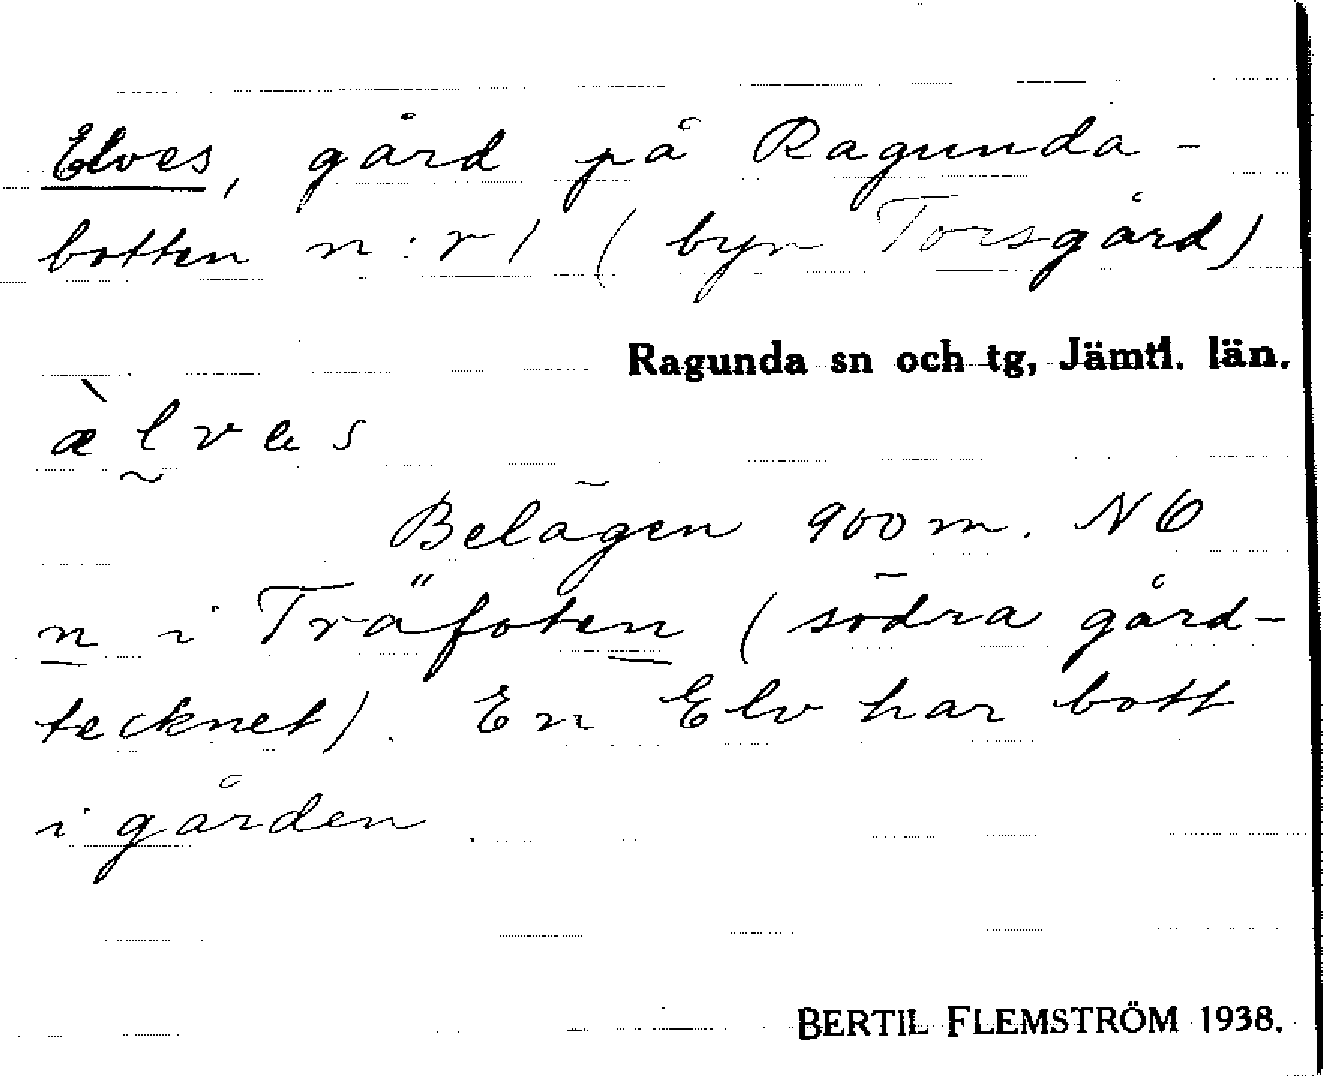 Elves, gård på Ragunda-
botten n:r 1 (byn Torsgård)
Ragunda sn och tg, Jämtl. län.
æ̀l̰ves
Belägen 900 m. NO
n i Träfoten (södra gård-
tecknet). En Elv har bott
i gården.
BERTIL FLEMSTRÖM 1938.